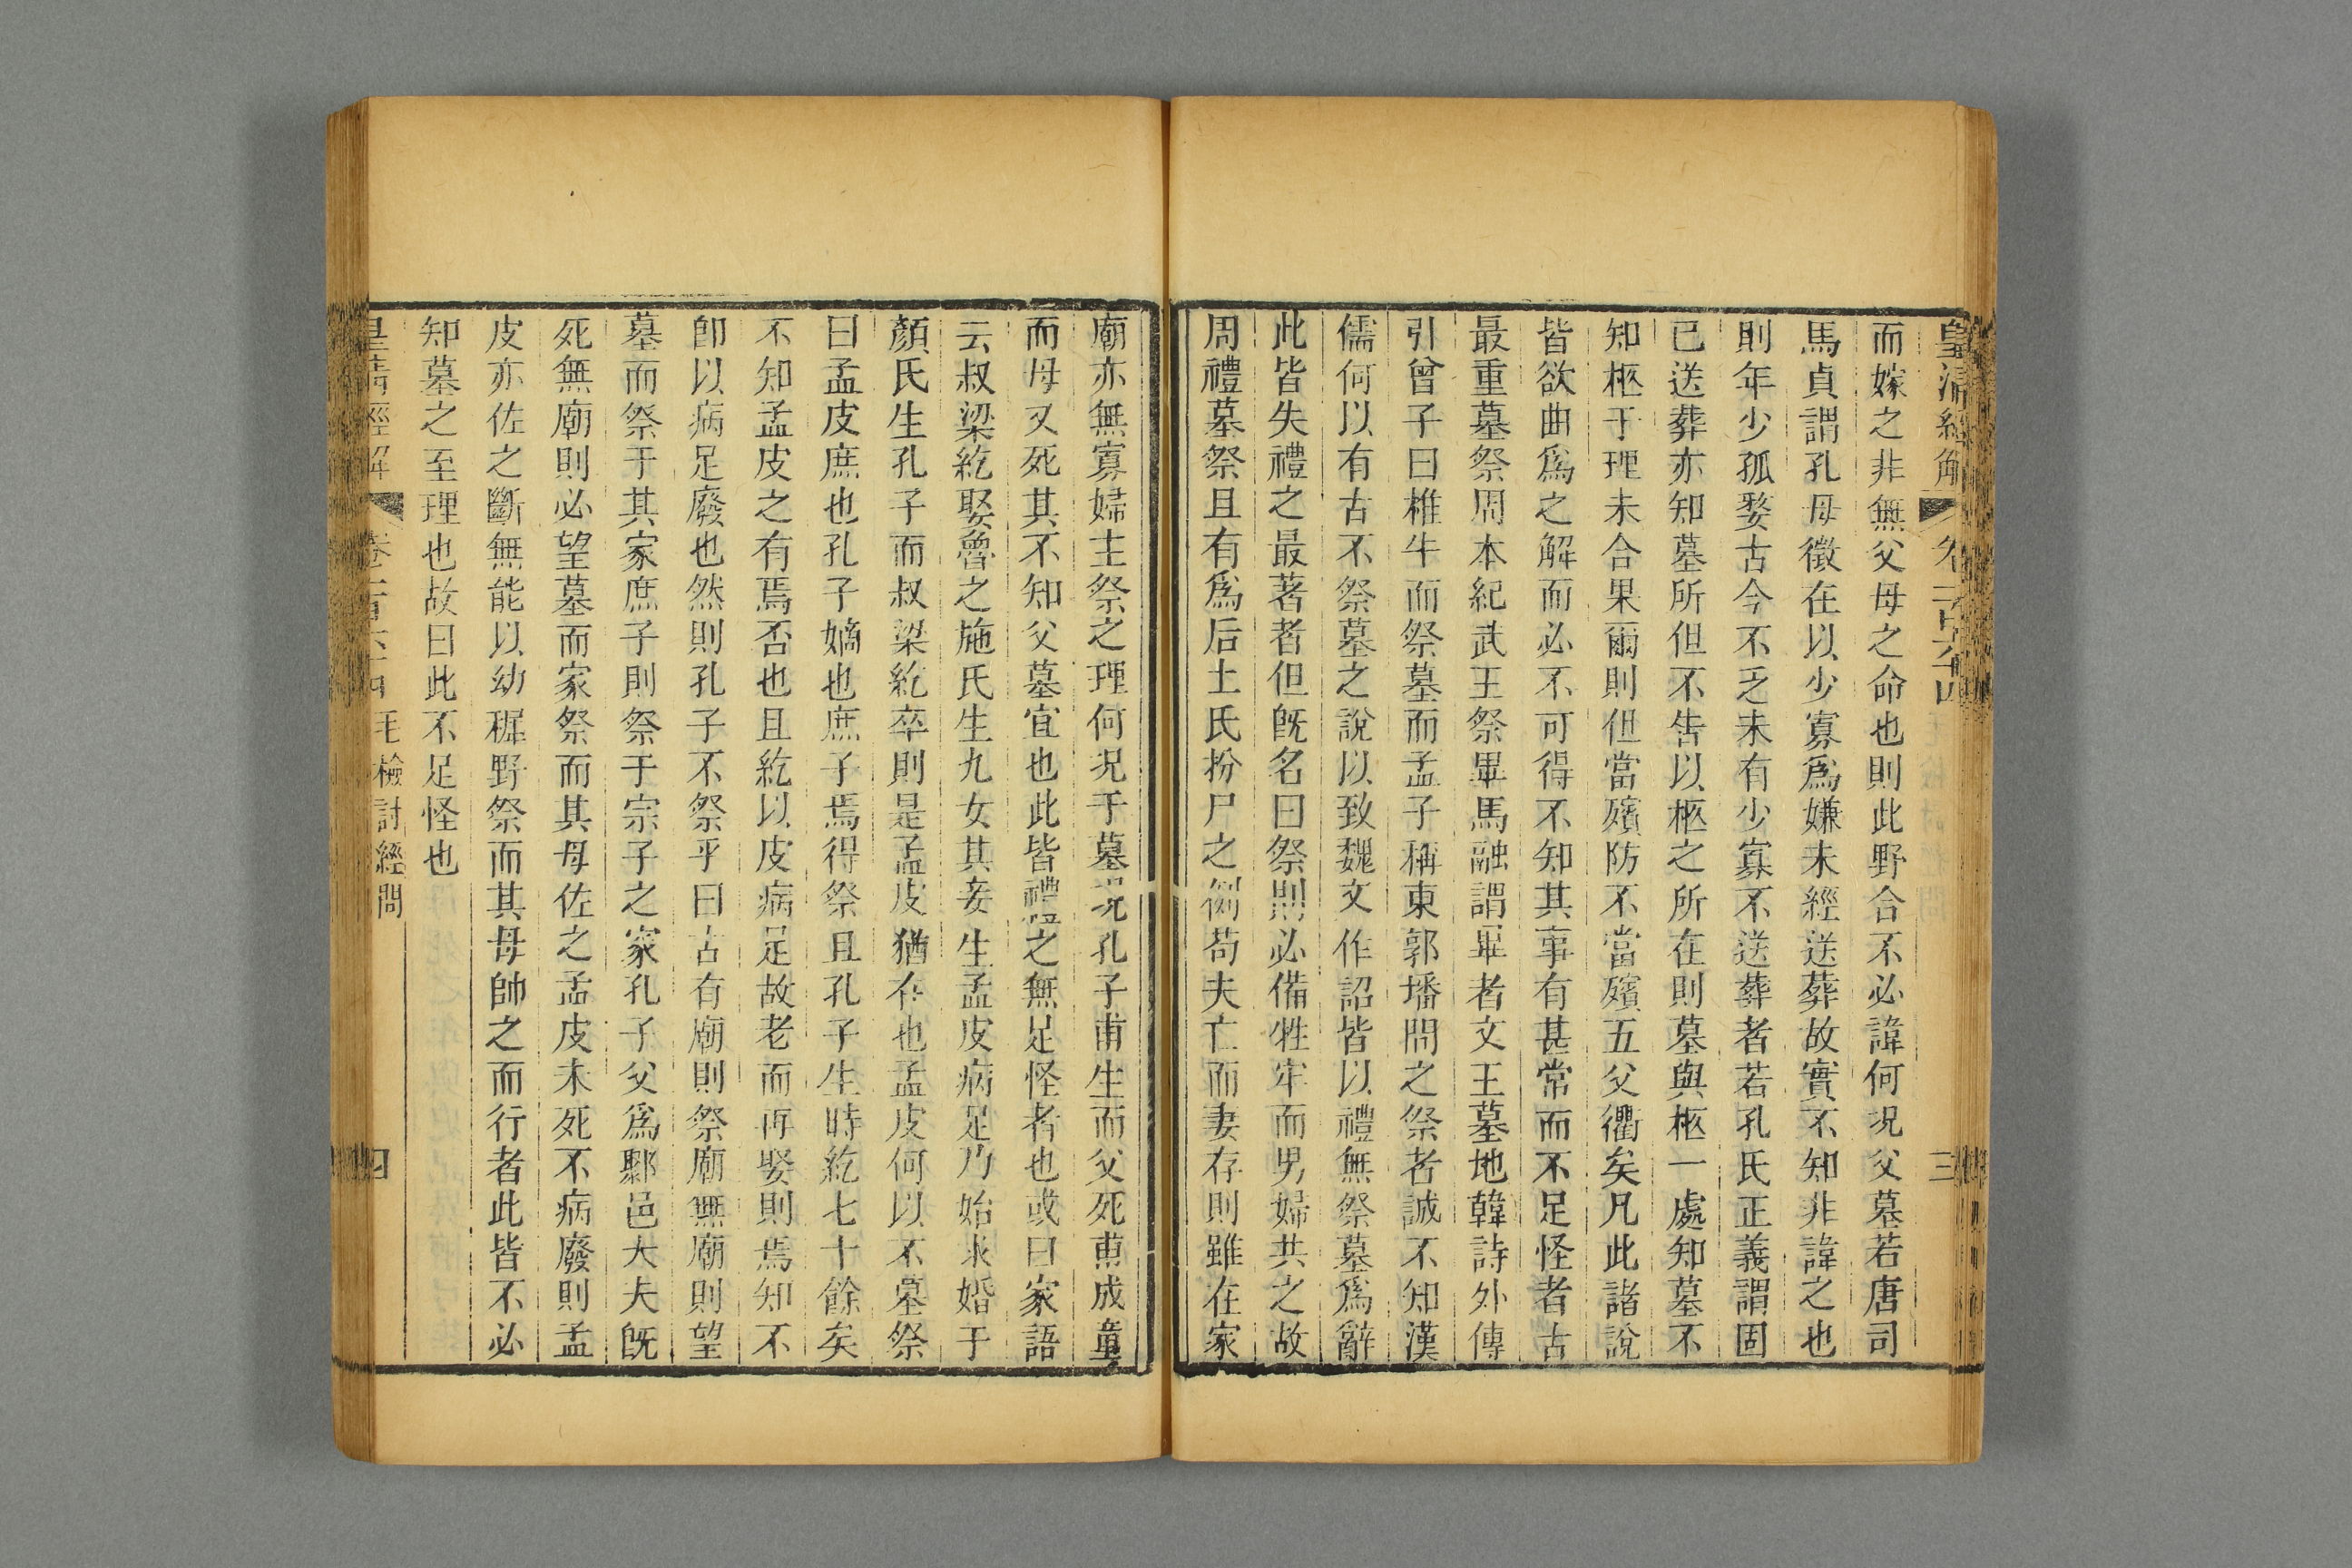 皇清經解 卷一百六十四 三
而嫁之非無父母之命也則此野合不必諱何况父墓若唐司
馬貞謂孔母徵在以少寡爲嫌未經送葬故實不知非諱之也
則年少孤嫠古今不乏未有少寡不送葬者若孔氏正義謂固
已送葬亦知墓所但不告以柩之所在則墓與柩一處知墓不
知柩于理未合果爾則但當殯防不當殯五父衢矣凡此諸說
皆欲曲爲之解而必不可得不知其事有甚常而不足怪者古
最重墓祭周本紀武王祭畢馬融謂畢者文王墓地韓詩外傳
引曾子曰椎牛而祭墓而孟子稱東郭墦間之祭者誠不知漢
儒何以有古不祭墓之說以致魏文作詔皆以禮無祭墓爲辭
此皆失禮之最著者但旣名曰祭則必備牲牢而男婦共之故
周禮墓祭且有爲后土氏扮尸之例苟夫亡而妻存則雖在家
廟亦無寡婦主祭之理何况于墓况孔子甫生而父死叀成童
而母又死其不知父墓宜也此皆禮之無足怪者也或曰家語
云叔梁紇娶魯之施氏生九女其妾生孟皮病足乃始求婚于
顏氏生孔子而叔梁紇卒則是孟皮猶存也孟皮何以不墓祭
曰孟皮庶也孔子嫡也庶子焉得祭且孔子生時紇七十餘矣
不知孟皮之有焉否也且紇以皮病足故老而再娶則焉知不
卽以病足廢也然則孔子不祭乎曰古有廟則祭廟無廟則望
墓而祭于其家庶子則祭于宗子之家孔子父爲鄹邑大夫旣
死無廟則必望墓而家祭而其母佐之孟皮未死不病廢則孟
皮亦佐之斷無能以幼穉野祭而其母帥之而行者此皆不必
知墓之至理也故曰此不足怪也
皇清經解 卷一百六十四 毛檢討經問 四